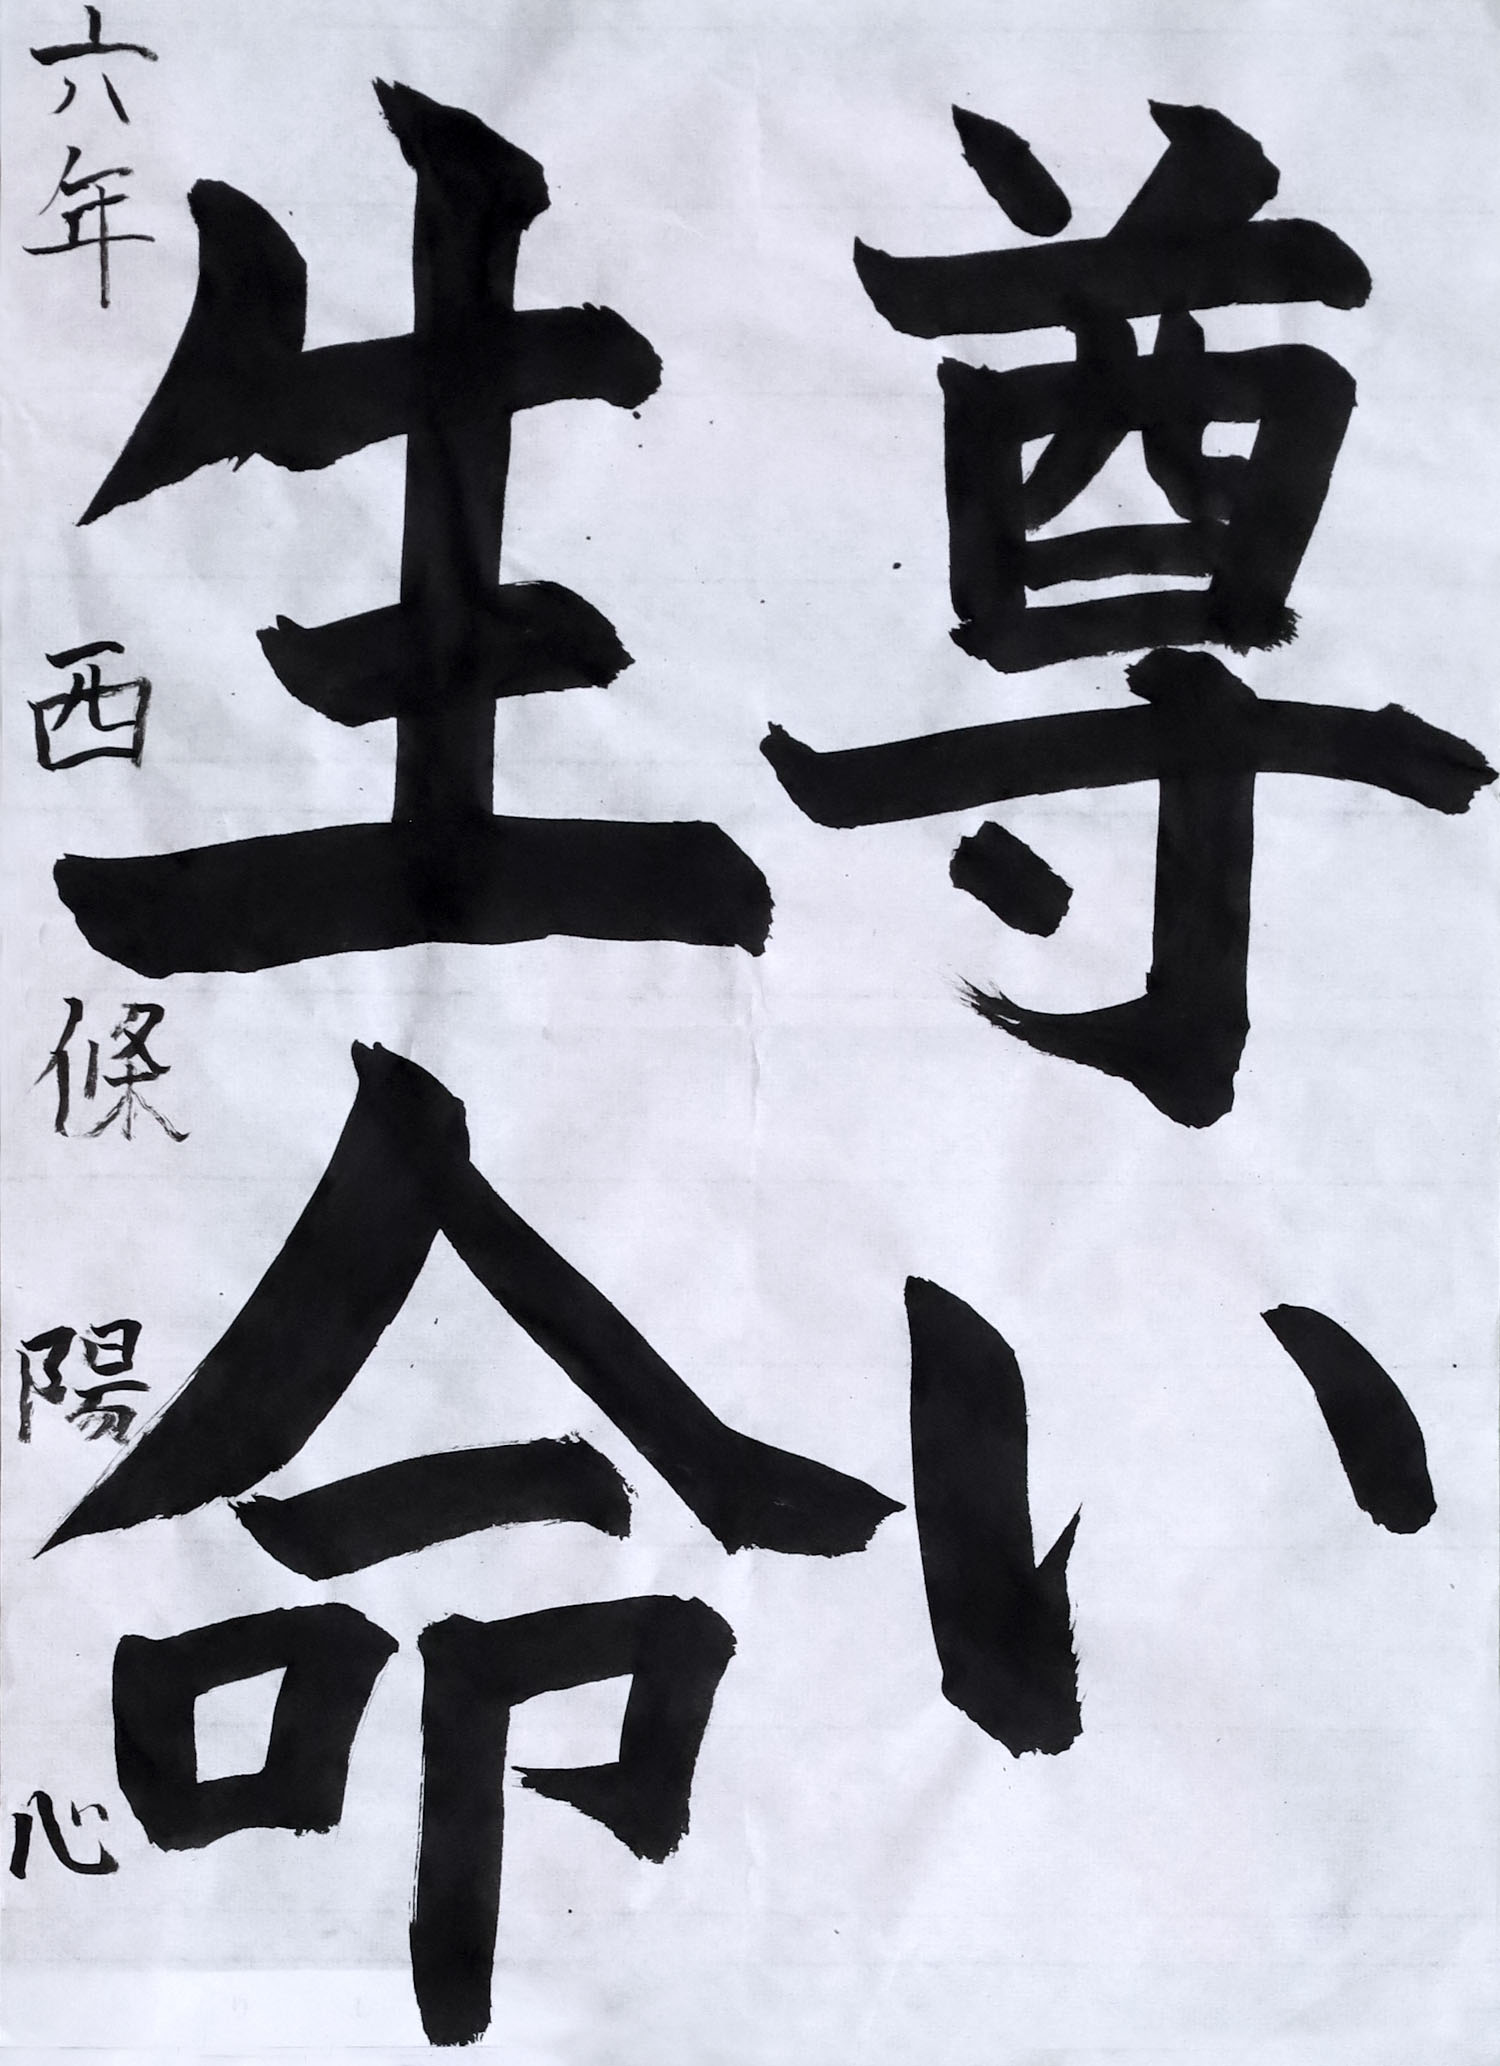 尊い
生命
六年 西條陽心